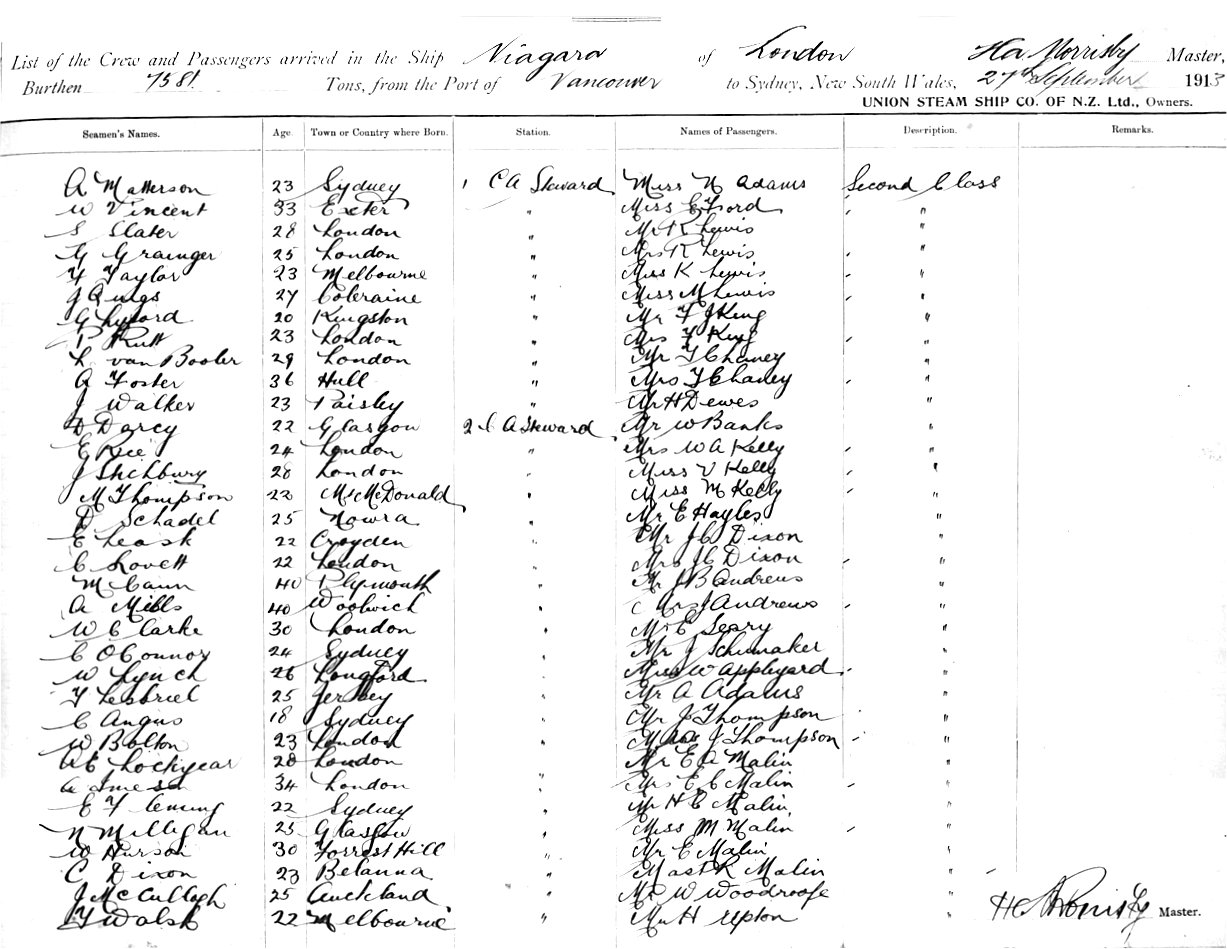 List of the Crew and Passengers arrived in the Ship Niagara of London H a Morrisby Master,
Burthen 7581 Tons, from the Port of Vancouver to Sydney, New South Wales, 27th September 1913
UNION STEAM SHIP CO. OF N.Z. Ltd., Owners.
Seamen's Names. Age. Town or Country where Born. Station. Names of Passengers. Description. Remarks.
A Matterson 23 Sydney 1 C A Steward Miss N Adams Second Class
W Vincent 33 Exeter " Miss E Ford "
S Slater 28 London " Mr R Lewis "
G Grainger 25 London " Mrs R Lewis "
F Taylor 23 Melbourne " Miss K Lewis "
J 27 Coleraine " Miss M Lewis "
G Lyford 20 Kingston " Mr F J King "
P Rutt 23 London " Mrs F King "
L van Booler 29 London " Mr F Chaney "
A Foster 36 Hull " Mrs F Chaney "
J Walker 23 Paisley " Mr H Dewes "
D Darcy 22 Glasgow 2 C A Steward Mr W Banks "
E Rice 24 London " Mrs W A Kelly "
J Stichbury 28 London " Miss V Kelly "
M Thompson 22 McDonald " Miss M Kelly "
D Schadel 25 Nowra " Mr E Hayles "
E Leask 22 Croyden " Mr J C Dixon "
C Lovett 22 London " Mrs J C Dixon "
M Cann 40 Plymouth " Mr J B Andrews "
A Mills 40 Woolwich " Mrs J Andrews "
W Clarke 30 London " Mr E Seary "
C O'Connor 24 Sydney " Mr J Schumaker "
W Lynch 26 Longford " Miss W Appleyard "
F Lesbriel 25 Jersey " Mr A Adams "
C Angus 18 Sydney " Mr J Thompson "
W Bolton 23 London " Mrs J Thompson "
A E Lockyear 28 London " Mr E A Malin "
A 34 London " Mrs E C Malin "
E F 22 Sydney " Mr H C Malin "
N Milligan 25 Glasgow " Miss M Malin "
W Hurson 30 Forrest Hill " Mr E Malin "
C Dixon 23 Belanna " Mast R Malin "
J McCullagh 25 Auckland " Mr W Woodroofe "
F Walsh 22 Melbourne " Mr H Upton " H A Morrisby Master.